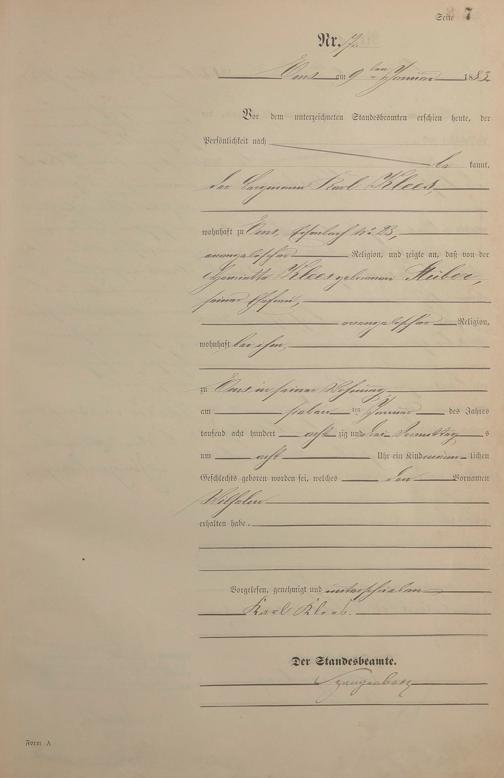 Seite 7
Nr. 7.
Ems am 9 ten Januar 1883
Vor dem unterzeichneten Standesbeamten erschien heute, der
Persönlichkeit nach
be kannt,
der Bergmann Karl Klees,
wohnhaft zu Ems, No 28,
evangelischer Religion, und zeigte an, daß von der
Henriette Klees geborenen Stüber,
seiner Ehefrau,
evangelischer Religion,
wohnhaft bei ihm,
zu Ems in seiner Wohnung
am sieben ten Januar des Jahres
tausend acht hundert acht zig und drei Vormittag s
um acht Uhr ein Kind männ lichen
Geschlechts geboren worden sei, welches den Vornamen
Wilhelm
erhalten habe.
Vorgelesen, genehmigt und unterschrieben
Karl Klees.
Der Standesbeamte.
Form A